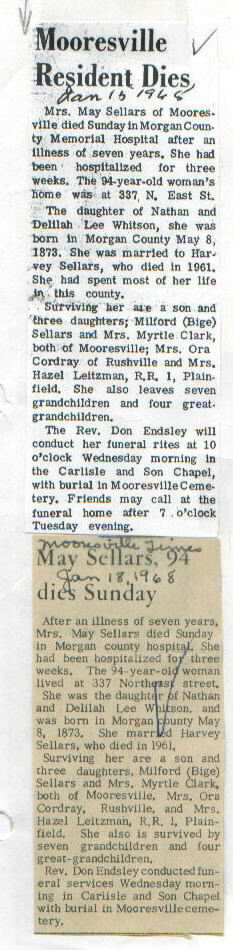 Mooresville
Resident Dies
Jan 15 1968
Mrs. May Sellars of Moores-
ville died Sunday in Morgan Coun-
ty Memorial Hospital after an
illness of seven years. She had
been hospitalized for three
weeks. The 94-year-old woman's
home was at 337 N. East St.
The daughter of Nathan and
Delilah Lee Whitson, she was
born in Morgan County May 8,
1873. She was married to Har-
vey Sellars, who died in 1961.
She had spent most of her life
in this county.
Surviving her are a son and
three daughters; Milford (Bige)
Sellars and Mrs. Myrtle Clark,
both of Mooresville; Mrs. Ora
Cordray of Rushville and Mrs.
Hazel Leitzman, R.R. 1, Plain-
field. She also leaves seven
grandchildren and four great-
grandchildren.
The Rev. Don Endsley will
conduct her funeral rites at 10
o'clock Wednesday morning in
the Carlisle and Son Chapel,
with burial in Mooresville Ceme-
tery. Friends may call at the
funeral home after 7 o'clock
Tuesday evening.
Mooresville Times
May Sellars, 94
Jan 18, 1968
dies Sunday
After an illness of seven years,
Mrs. May Sellars died Sunday
in Morgan county hospital. She
had been hospitalized for three
weeks. The 94-year-old woman
lived at 337 Northeast street.
She was the daughter of Nathan
and Delilah Lee Whitson, and
was born in Morgan county May
8, 1873. She married Harvey
Sellars, who died in 1961.
Surviving her are a son and
three daughters, Milford (Bige)
Sellars and Mrs. Myrtle Clark,
both of Mooresville, Mrs. Ora
Cordray, Rushville, and Mrs.
Hazel Leitzman, R.R. 1, Plain-
field. She also is survived by
seven grandchildren and four
great-grandchildren.
Rev. Don Endsley conducted fun-
eral services Wednesday morn-
ing in Carlisle and Son Chapel
with burial in Mooresville ceme-
tery.